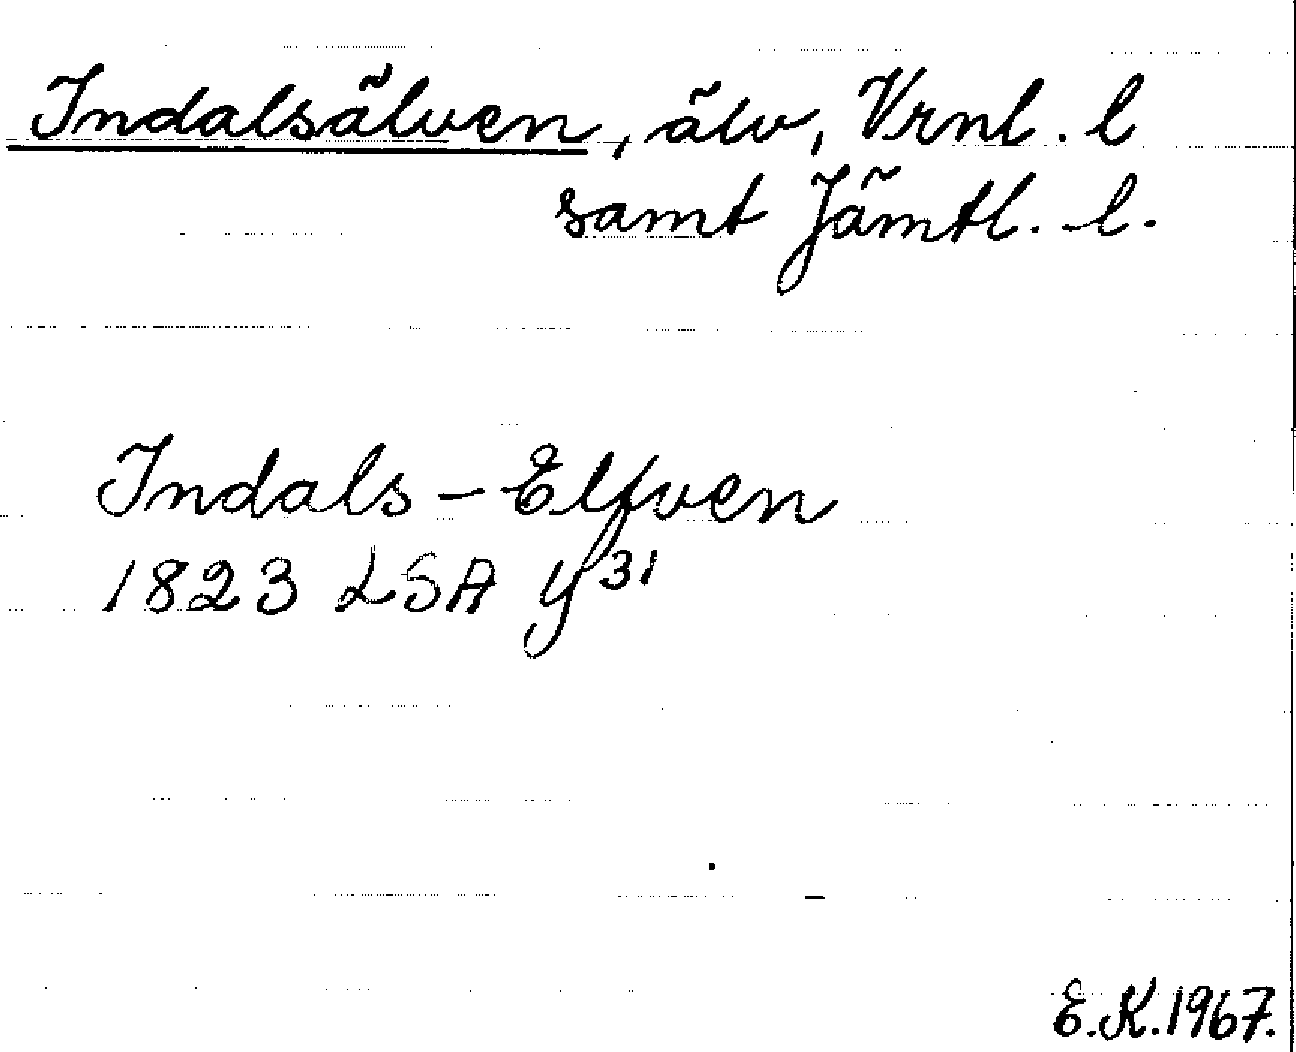 Indalsälven, älv, Vrnl. l
samt Jämtl. l.
Indals-Elfven
1823 LSA Y31
E.K.1967.